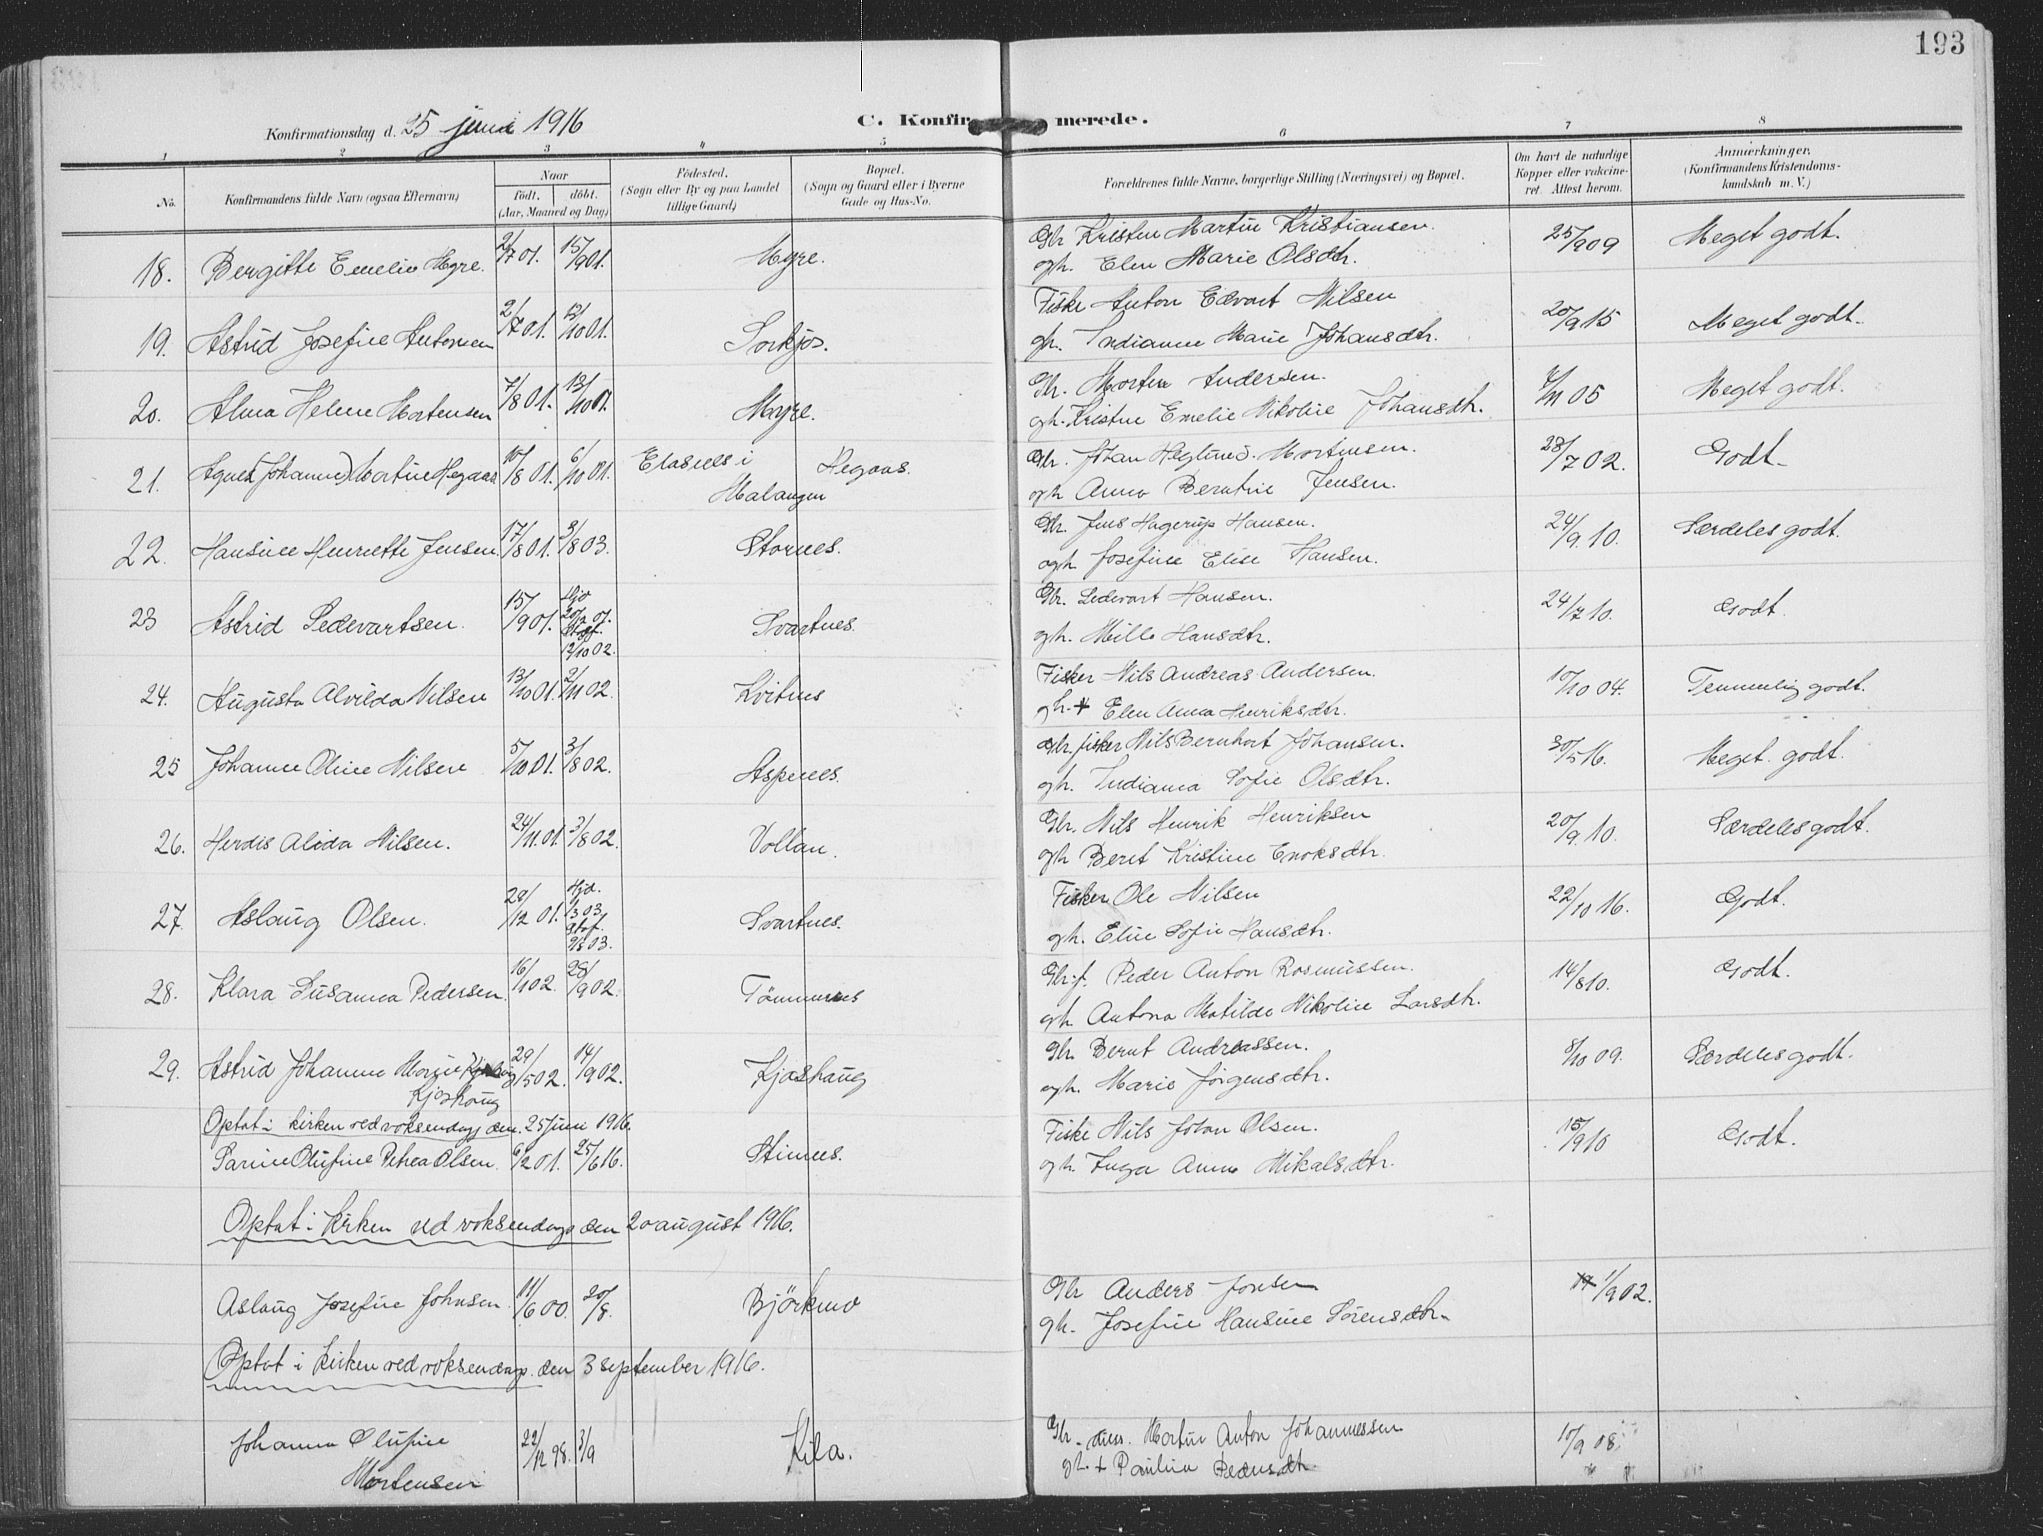 193
Konfirmationsdag d. 25 juni 1916
C. Konfirmerede.
1 2 3 4 5 6 7 8
No. Konfirmandens fulde Navn (ogsaa Efternavn) Naar født. døbt. (Aar, Maaned og Dag) Födested. (Sogn eller By og paa Landet tillige Gaard) Bopæl. (Sogn og Gaard eller i Byerne Gade og Hus-No. Forældrenes fulde Navne, borgerlige Stilling (Næringsvei) og Bopæl. Om havt de naturlige Kopper eller vakcineret. Attest herom. Anmærkninger. (Konfirmandens Kristendomskundskab m. V.)
18. Bergitte Emelie Myre. 2/7 01. 15/9 01. Myre. Gbr Kristen Martin Kristiansen. 25/9 09 Meget godt.
ogh. Elen Marie Olsdtr.
19. Astrid Josefine Antonsen 2/7 01. 13/10 01. Sorkjos. Fisker Anton Edvart Nilsen 20/9 15 Meget godt.
gh. Indianna Marie Johansdtr.
20. Alma Helene Mortensen 7/8 01. 13/10 01. Myre. Gbr. Morten Andersen. 4/11 05 Meget godt.
gh. Kristine Emelie Nikoline Johansdtr.
21. Agnes (Johanne) Martine Hegaas 10/8 01. 6/10 01. i Malangen Hegaas. Gbr. Johan Heglund Mortensen. 28/7 02. Godt.
ogh Anna Berntine Jensen.
22. Hansine Henriette Jensen 17/8 01. 3/8 03. Stornes. Gbr. Jens Hagerup Hansen. 24/9 10. Særdeles godt.
ogh. Josefine Elise Hansen.
23 Astrid Sedevartsen. 15/9 01. Hjd 20/12 01. Stadf. 12/10 02. Svartnes. Gbr. Sedevart Hansen. 24/7 10. Godt.
gh. Milla Hansdtr.
24. Augusta Alvilda Nilsen 13/10 01. 2/11 02. Kvitnes Fisker Nils Andreas Andersen. 10/10 04. Temmelig godt.
gh. + Elen Anna Henriksdtr.
25 Johanne Oline Nilsen 5/10 01. 3/8 02. Aspenes. Gbr. fisker Nils Bernhart Johansen. 30/5 16. Meget godt.
gh. Indianna Sofie Olsdtr.
26. Herdis Alida Nilsen. 24/11 01. 3/8 02. Vollan. Gbr. Nils Henrik Henriksen 20/9 10. Særdeles godt.
gh Beret Kristine Enoksdtr.
27. Aslaug Olsen. 29/12 01. Hjd. 1/3 03. Stadf. 03. Svartnes. Fisker Ole Nilsen 22/10 16. Godt.
gh. Eline Sofie Hansdtr.
28. Klara Susanna Pedersen. 16/1 02. 28/9 02. Tömmernes Gbr. f. Peder Anton Rasmussen. 14/8 10. Godt.
gh Antona Matilde Nikoline Larsdtr.
29. Astrid Johanne Margie 29/5 02. 14/9 02. Kjoshaug Gbr Bernt Andreassen. 8/10 09. Særdeles godt.
Kjoshaug
ogh. Marie Jörgensdtr.
Optat i kirken ved voksendaap den 25 juni 1916. Fisker Nils Johan Olsen. 15/9 10 Godt.
Sarine Olufine Petrea Olsen. 6/2 01. 25/6 16. Stinnes. gh. Inga Anna Mikalsdtr.
Optat i kirken ved voksendaap den 20 august 1916.
Aslaug Josefine Johnsen. 11/6 00. 20/8. Björkmo Gbr Anders Jonsen 1/9 02.
gh. Josefine Hansine Sörensdtr.
Optat i kirken ved voksendaap. den 3 september 1916.
Johanna Olufine 22/12 98. 3/9 Kila. Gbr. Martin Anton Johannessen 10/9 08.
Mortensen gh. + Paulina Pedersdtr.